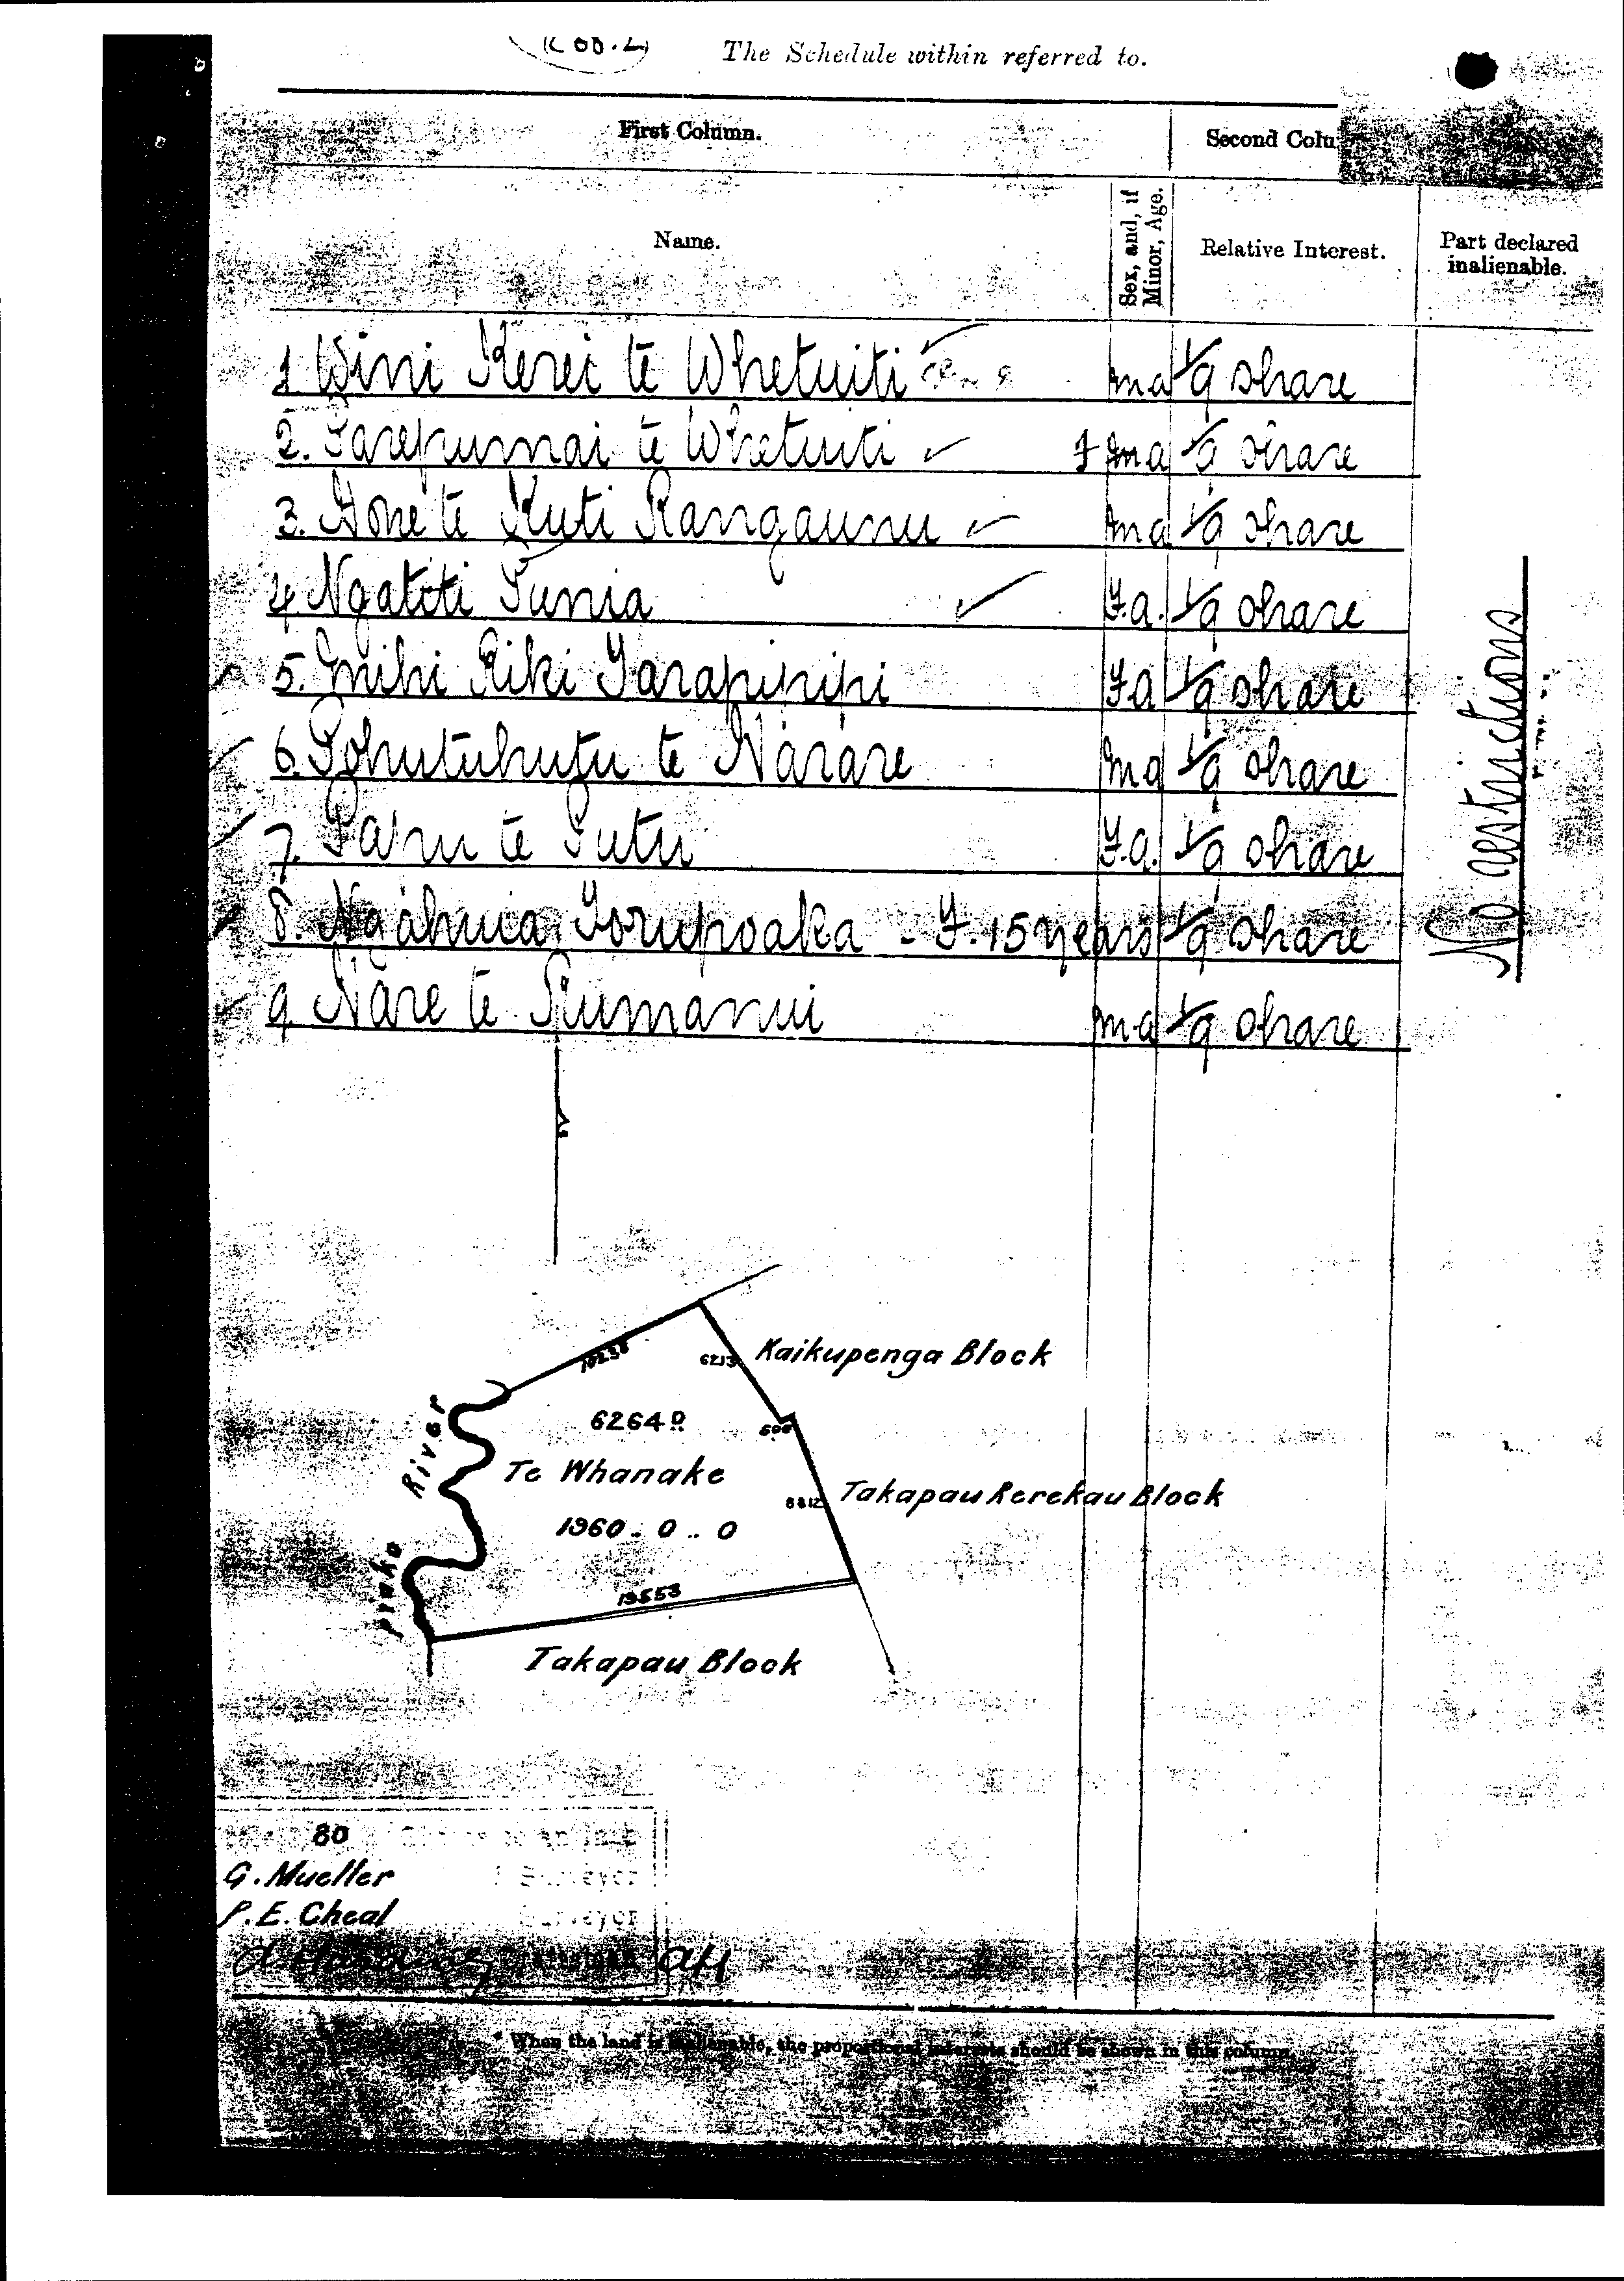 The Schedule within referred to.
First Column.
Second Colu
Name.
Sex, and, if Minor, Age.
Relative Interest.
Part declared inalienable.
1 Wini Kerei te Whetuiti ma 1/9 share
2. Parepumai te Whetuiti F ma 1/9 share
3. Hone te Kuti Rangaunu ma 1/9 share
4. Ngatiti Punia F.a. 1/9 share
5. Mihi Riki Tarapipipi F.a 1/9 share
6. Pohutuhutu te Narare ma 1/9 share
7. Papu te Putu F.a. 1/9 share
8. Ngahuia Torupoaka - F. 15 years 1/9 share
9. Nare te Rumanui ma 1/9 share
No restrictions
10238
6213
Kaikupenga Block
6264 D
600
River
Te Whanake
8812
Takapau Rerekau Block
1960 - 0 .. 0
Piako
19553
Takapau Block
80
G. Mueller
Surveyor
P. E. Cheal
Surveyor
AH
* When the land is inalienable, the proportional interests should be shown in this column.